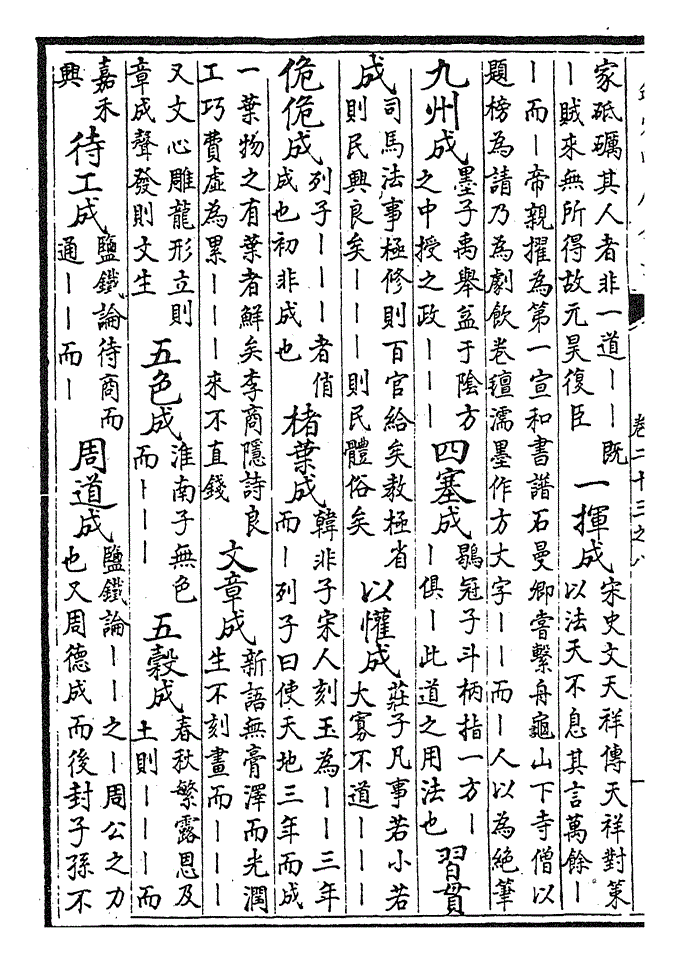 卷二十三之八
家砥礪其人者非一道｜｜既
｜賊來無所得故元昊復臣
一揮成
宋史文天祥傳天祥對策
以法天不息其言萬餘｜
｜而｜帝親擢為第一宣和書譜石曼卿嘗繫舟龜山下寺僧以
題榜為請乃為劇飲卷氊濡墨作方大字｜｜而｜人以為絕筆
九州成
墨子禹舉益于陰方
之中授之政｜｜｜
四塞成
鶡冠子斗柄指一方｜
｜俱｜此道之用法也
習貫
成
司馬法事極修則百官給矣教極省
則民興良矣｜｜｜則民體俗矣
以懽成
莊子凡事若小若
大寡不道｜｜｜
佹佹成
列子｜｜｜者俏
成也初非成也
楮葉成
韓非子宋人刻玉為｜｜三年
而｜列子曰使天地三年而成
一葉物之有葉者鮮矣李商隱詩良
工巧費虛為累｜｜｜來不直錢
文章成
新語無膏澤而光潤
生不刻畫而｜｜｜
又文心雕龍形立則
章成聲發則文生
五色成
淮南子無色
而｜｜｜
五穀成
春秋繁露恩及
土則｜｜｜而
嘉禾
興
待工成
鹽鐵論待商而
通｜｜而｜
周道成
鹽鐵論｜｜之｜周公之力
也又周德成而後封子孫不